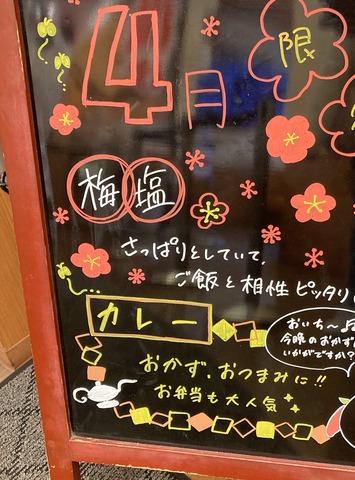 4月
限
梅塩
さっぱりとしていて、
ご飯と相性ピッタリ
カレー
おいち〜♪
今晩のおかず
いかがですか?
おかず、おつまみに!!
お弁当も大人気